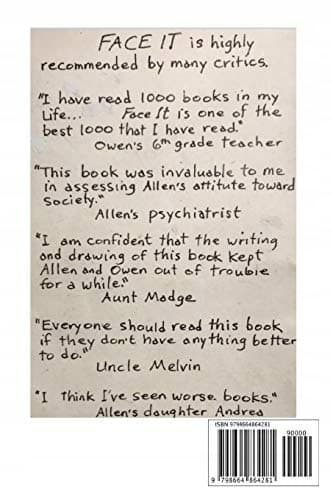 FACE IT is highly
recommended by many critics.
"I have read 1000 books in my
life... Face It is one of the
best 1000 that I have read."
Owen's 6th grade teacher
"This book was invaluable to me
in assessing Allen's attitute toward
society."
Allen's psychiatrist
"I am confident that the writing
and drawing of this book kept
Allen and Owen out of trouble
for a while."
Aunt Madge
"Everyone should read this book
if they don't have anything better
to do."
Uncle Melvin
"I think I've seen worse books."
Allen's daughter Andrea
ISBN 9798664864281
90000
9 798664 864281